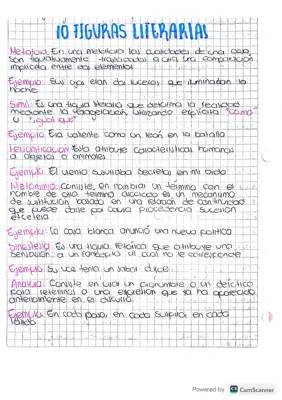 10 FIGURAS LITERARIAS
Metafora: En una metafora las cualidades de una cosa
son figurativamente trasladadas a otra una comparación
implícita entre dos elementos
Ejemplo: Sus ojos eran dos luceros que iluminaban la
noche
Simil: Es una figura literaria que
mediante la utilizando explícita "Como"
o "igual que"
Ejemplo: Era valiente como un león en la batalla
Esta atribute caracteristicas humanas
a objetos o animales
Ejemplo: El viento susurraba secretos en mi oido
Metonimia: Consiste en nombrar un término con el
nombre de otra termino asociado es un mecanismo
de sustitución basado en una relación de continuidad
que puede darse por causa procedencia sucesión
etcetera
Ejemplo: La casa blanca anunció una nueva politica
Sinestesia: Es una figura retorica que atribuye una
sensación a un que no le corresponde
Ejemplo: Su voz tenia un sabor dulce
Anafora: Consiste en usar un pronombre o un deictico
para referirnos a una expresion que ya ha aparecido
anteriormente en el discurso
Ejemplo: En cada paso, en cada suspiro, en cada
latido
Powered by CS CamScanner